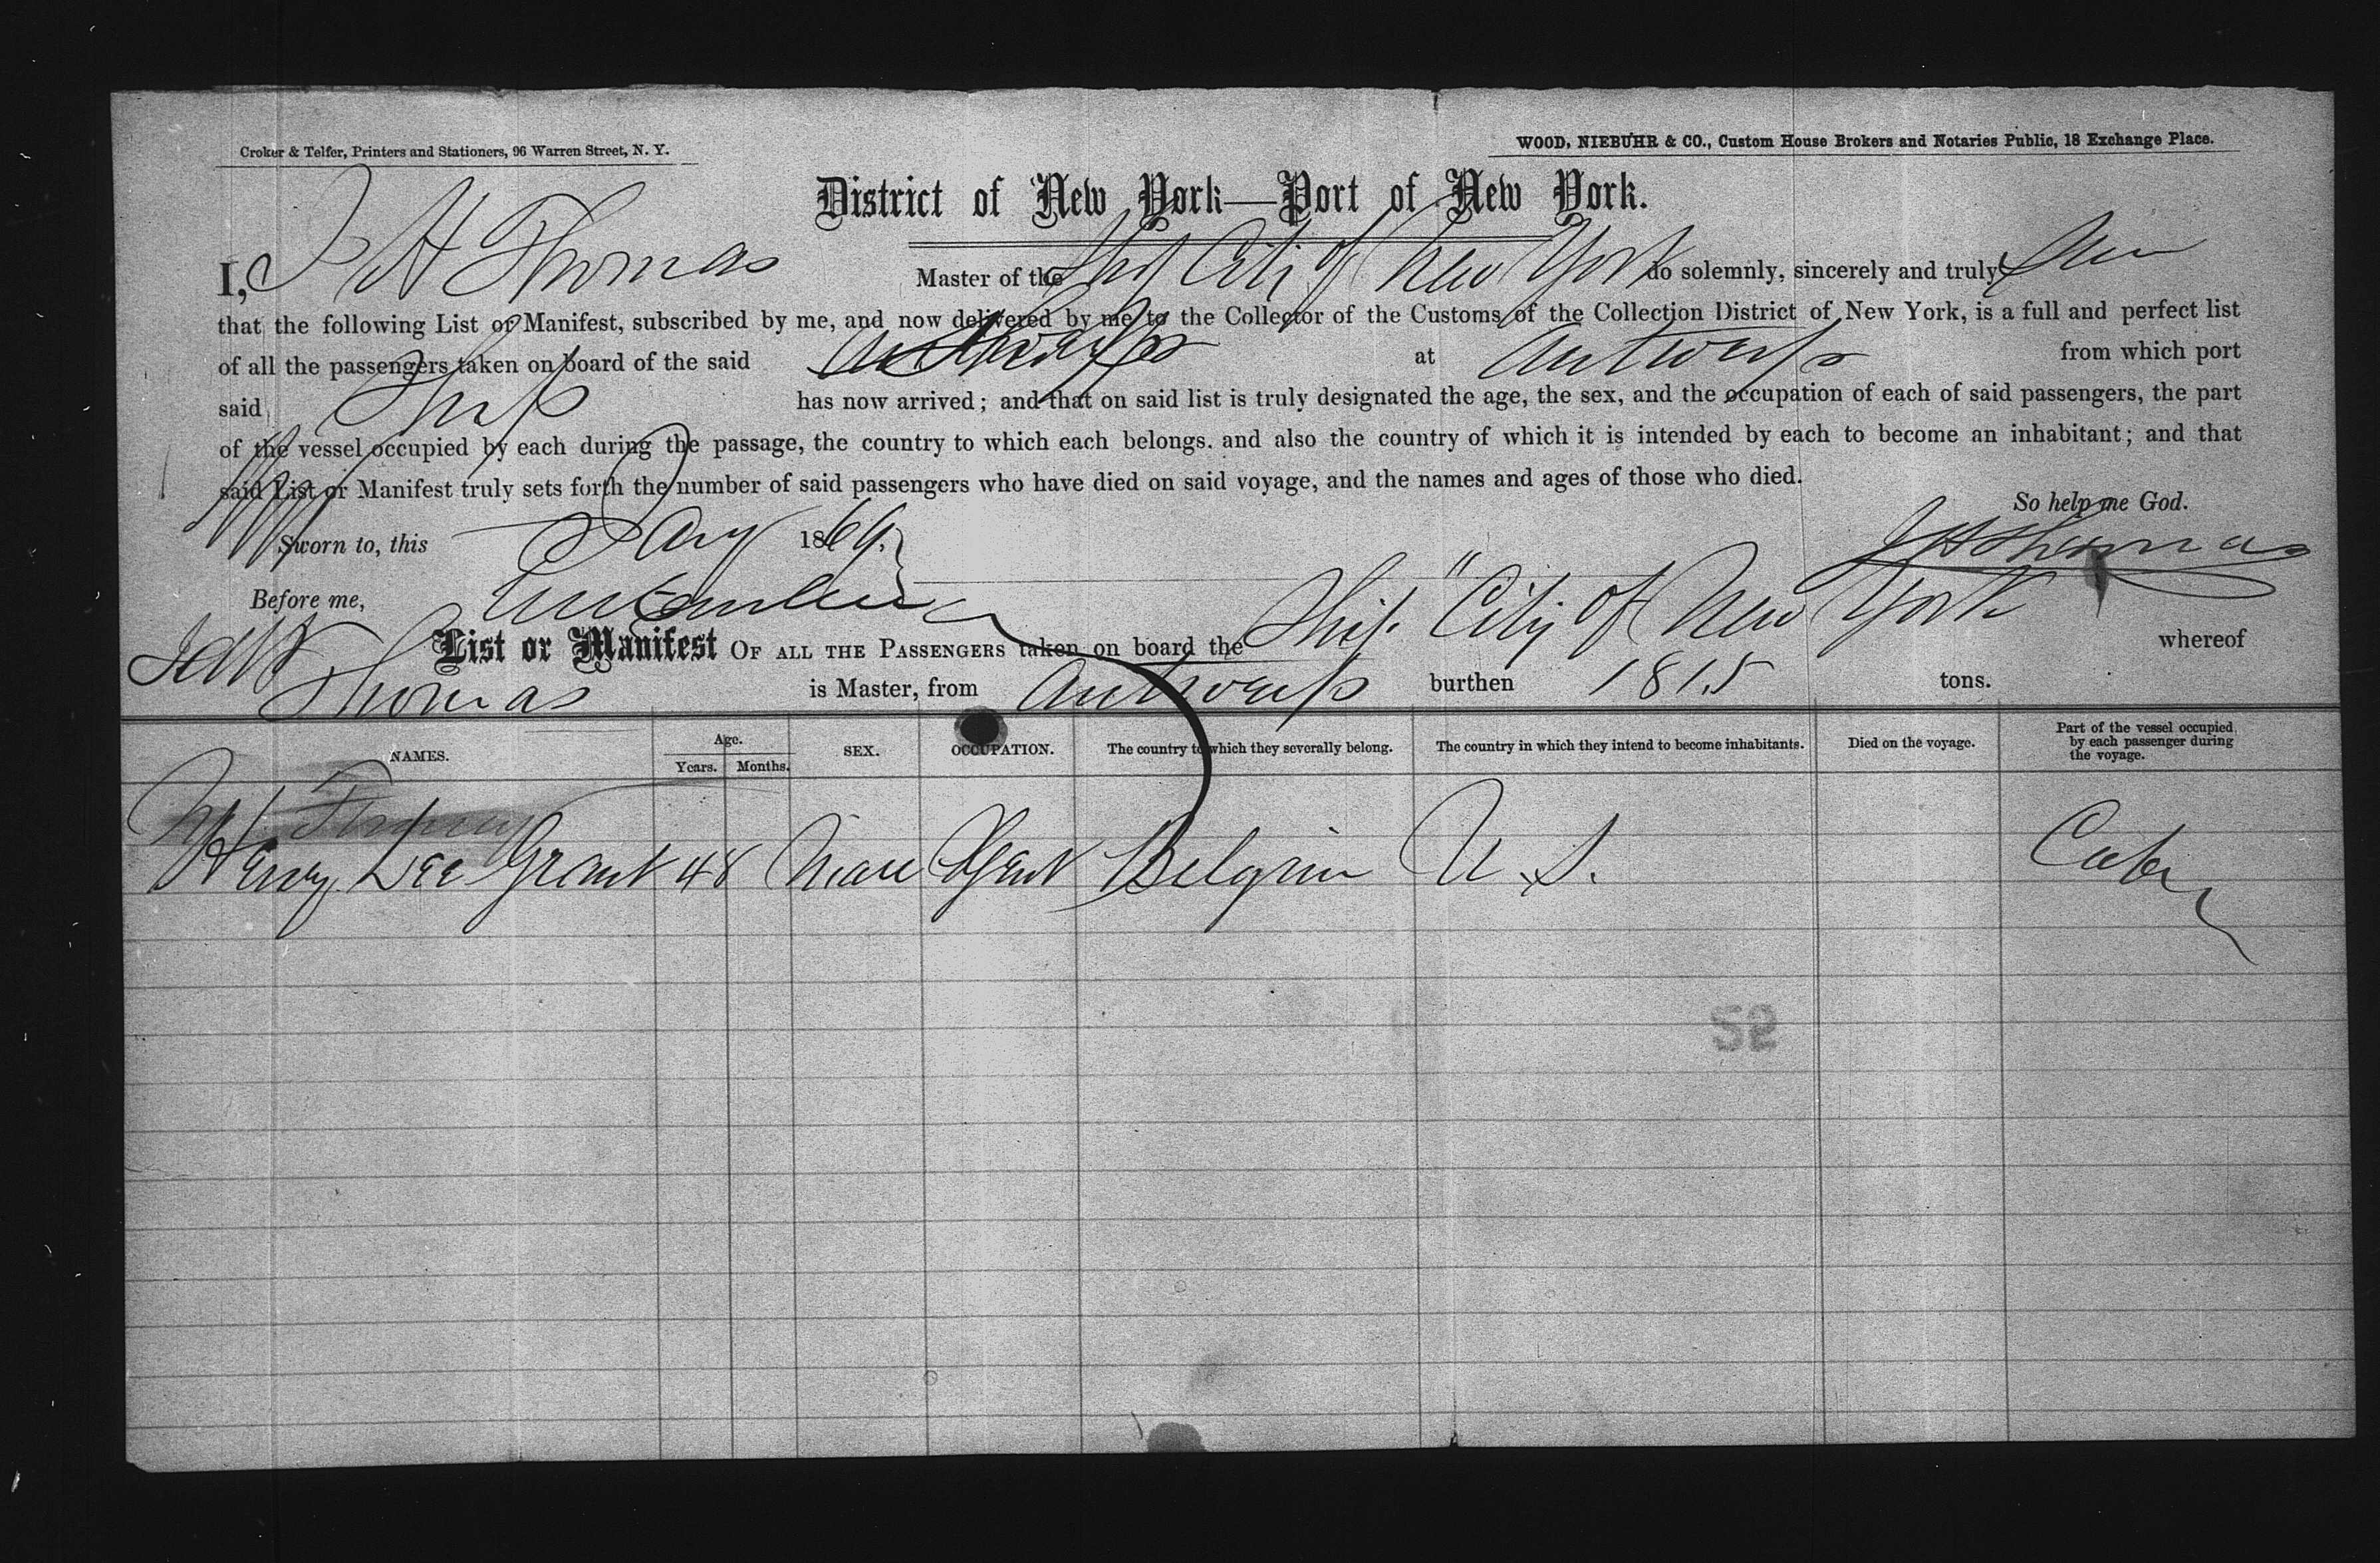 Croker & Telfer, Printers and Stationers, 96 Warren Street, N. Y.
WOOD, NIEBUHR & CO., Custom House Brokers and Notaries Public, 18 Exchange Place.
District of New York—Port of New York.
I, J H Thomas Master of the Ship City of New York do solemnly, sincerely and truly
that the following List or Manifest, subscribed by me, and now delivered by me to the Collector of the Customs of the Collection District of New York, is a full and perfect list
of all the passengers taken on board of the said Ship at Antwerp from which port
said Ship has now arrived; and that on said list is truly designated the age, the sex, and the occupation of each of said passengers, the part
of the vessel occupied by each during the passage, the country to which each belongs. and also the country of which it is intended by each to become an inhabitant; and that
said List or Manifest truly sets forth the number of said passengers who have died on said voyage, and the names and ages of those who died.
So help me God.
Sworn to, this 1869.
J H Thomas
Before me,
List or Manifest OF ALL THE PASSENGERS taken on board the Ship "City of New York whereof
Thomas is Master, from Antwerp burthen 1815 tons.
NAMES. Age. Years. Months. SEX. OCCUPATION. The country to which they severally belong. The country in which they intend to become inhabitants. Died on the voyage. Part of the vessel occupied by each passenger during the voyage.
Henry Grant 48 Gent Belgium U. S.
52